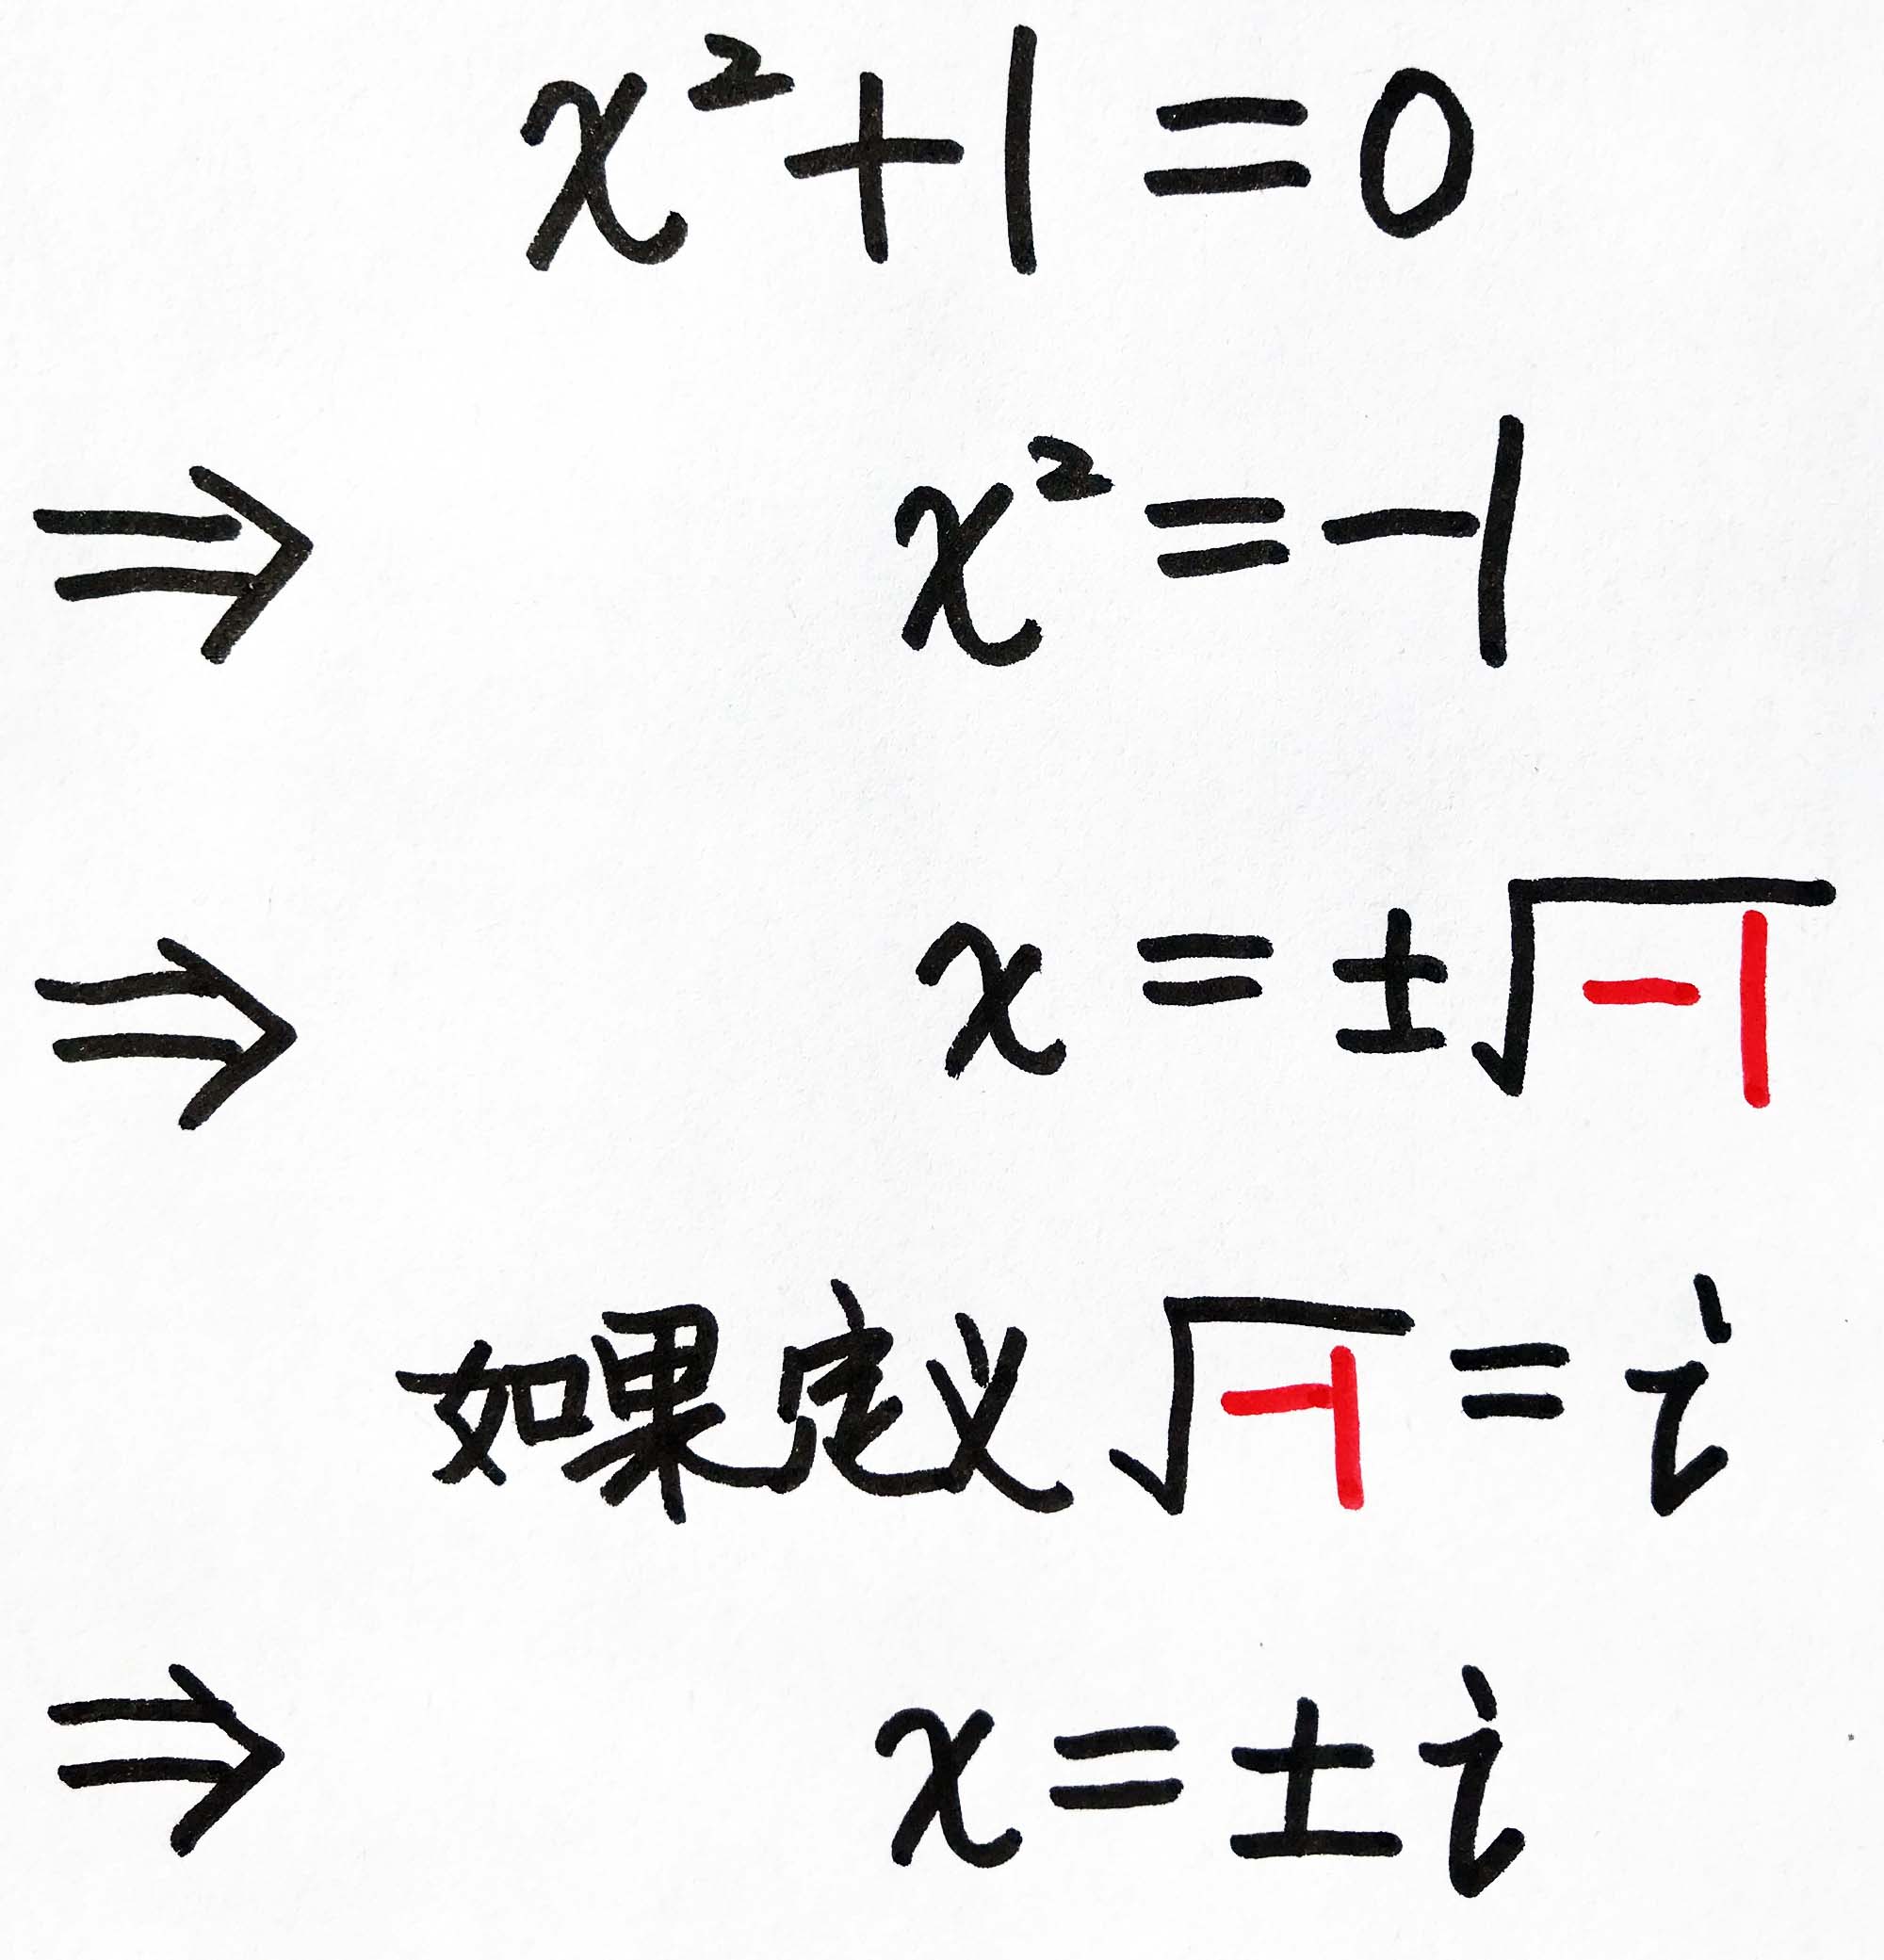 x²+1=0
⇒ x²=-1
⇒ x=±√-1
如果定义√-1=i
⇒ x=±i